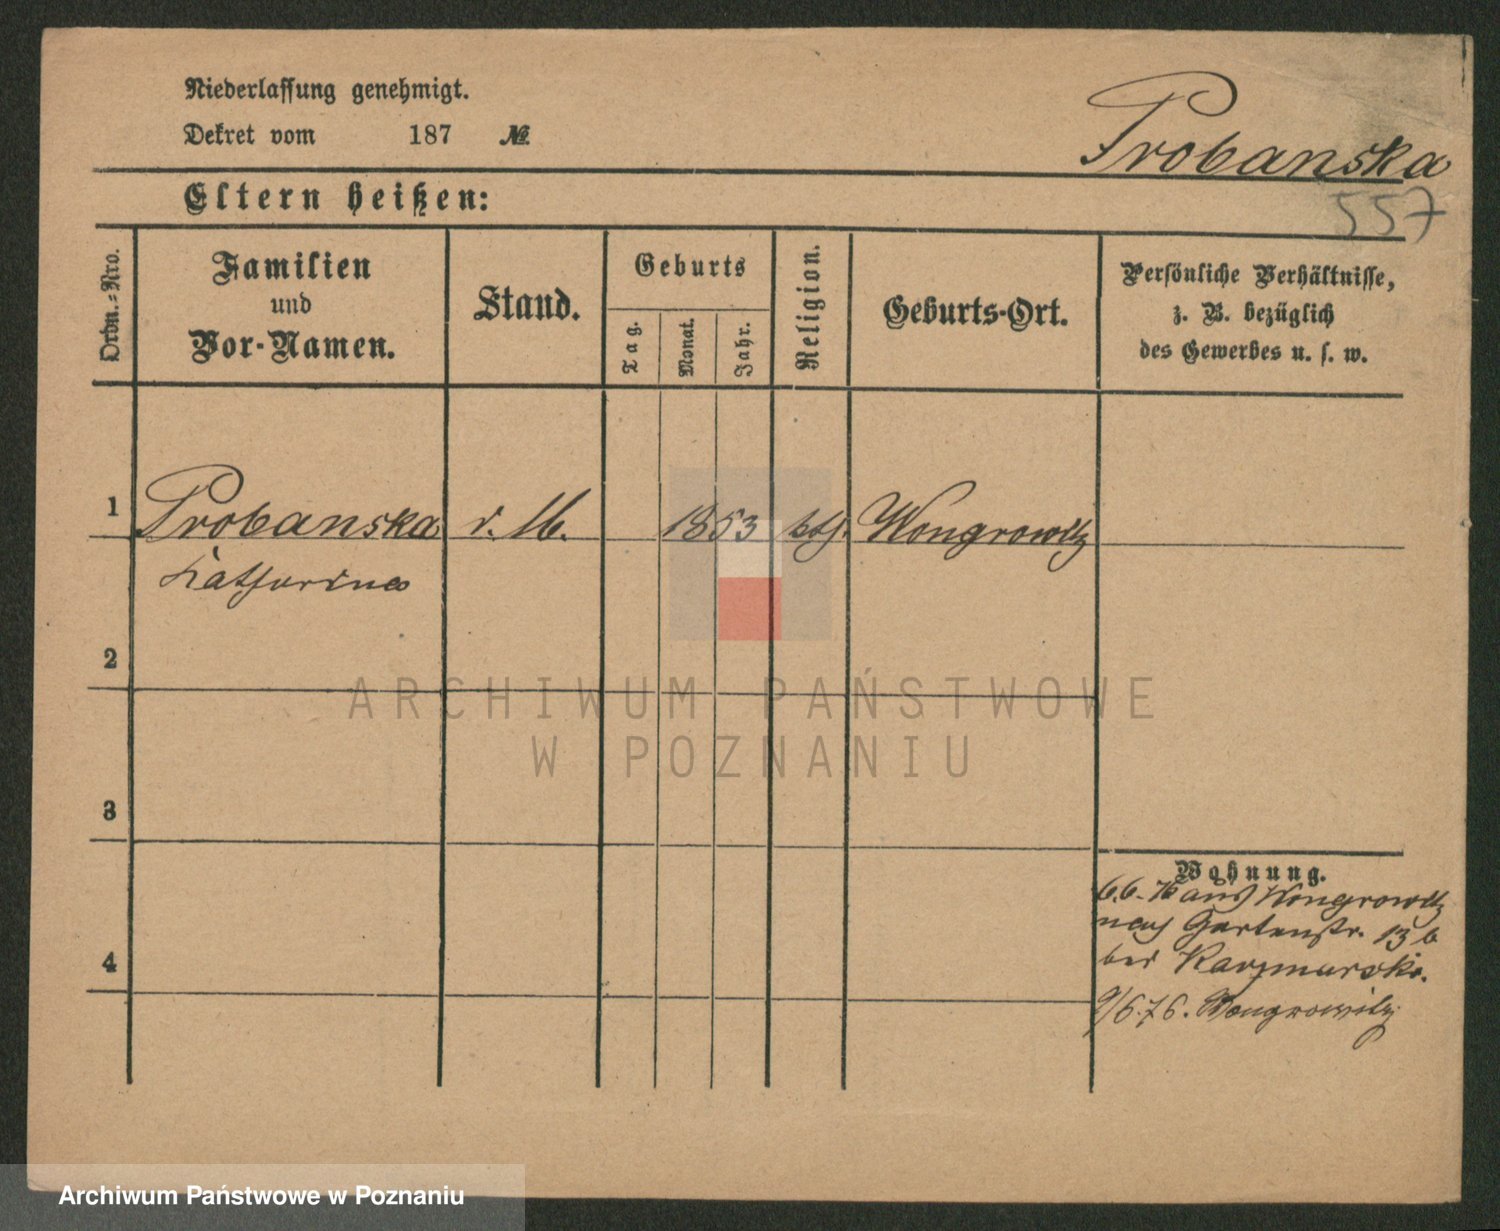 Niederlassung genehmigt.
Dekret vom 187 №
Probanska
557
Eltern heißen:
Ordn.-Nro.
Familien
und
Vor-Namen.
Stand.
Geburts
Tag.
Monat.
Jahr.
Religion.
Geburts-Ort.
Persönliche Verhältnisse,
z. B. bezüglich
des Gewerbes u. s. w.
1 Probanska 1853 kth. Wongrowitz
Catharina
2
ARCHIWUM PAŃSTWOWE
W POZNANIU
3
Wohnung.
6.6.76 aus Wongrowitz
nach Gartenstr. 13 b
bei Kaczmarski.
4
9/6.76. Wongrowitz
Archiwum Państwowe w Poznaniu